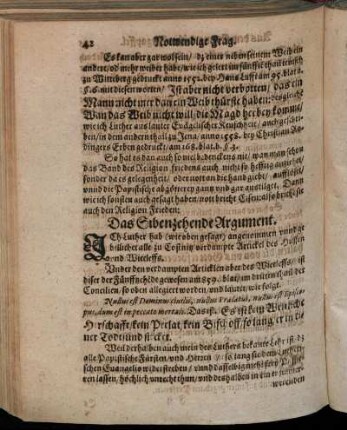 42 Notwendige Frag.
Es kan aber gar wol sein / dz einer neben seinem Weib ein
andere / od mehr weiber habe / wie ich gelert im fünfften theil teutsch
zu Wittēberg gedruckt anno 1552. bey Hans Lufft am 95. blat b.
§. 6. mit diesen worten / Ist aber nicht verbotten / das ein
Mann nicht mer dan ein Weib thürste haben: desgleich
Wan das Weib nicht will / die Magd her bey komm /
wie ich Luther aus lauter Euangelischer Keuschheit / auch gelert ha-
ben / in dem andern thail zu Jena / anno 1558. bey Christian
dingers Erben gedruckt / am 168. blat b. §. 3.
So hat es dan auch so viel bedenckens nit / wan man schon
das Band des Religion friedens auch nicht so hefftig
sonder da es gelegenheit / oder not on den hand gebe / aufflösete /
vnd die Papistische abgötterey gantz vnd gar austilget. Dann
wie ich sonsten auch gesagt haben / not bricht Eisen / also bricht sie
auch den Religion Frieden:
Das Sibenzehende Argument.
Ich Luther hab (wie oben gesagt) angenommen vnnd ge
billichet alle zu Costnitz verdampte Artickel des Hussen
vnd Wicleffs.
Vnder den verdampten Articklen aber des Wicleffs / ist
diser der Fünffzehēde gewesen am 959. blat / im dritten theil der
Concilien / so oben allegiert worden / vnd lautet / wie folgt.
Nullus est Dominus ciuilis, nullus Prælatus, nullus est Episco-
pus, dum est in peccato mortali. Das ist. Es ist kein Weltliche
Herrschafft / kein Prelat / kein Bischoff / so lang er in ei-
ner Todtsünd stecket.
Weil derhalben auch mein des Luthers bekante Lehr ist / dz
alle Papistische Fürsten vnd Herren / so lang sie dem Lutheri-
schen Euangelio widerstreben / vnnd dasselbig nicht frey
ren lassen / höchlich vnrecht thun / vnd deshalben in ein